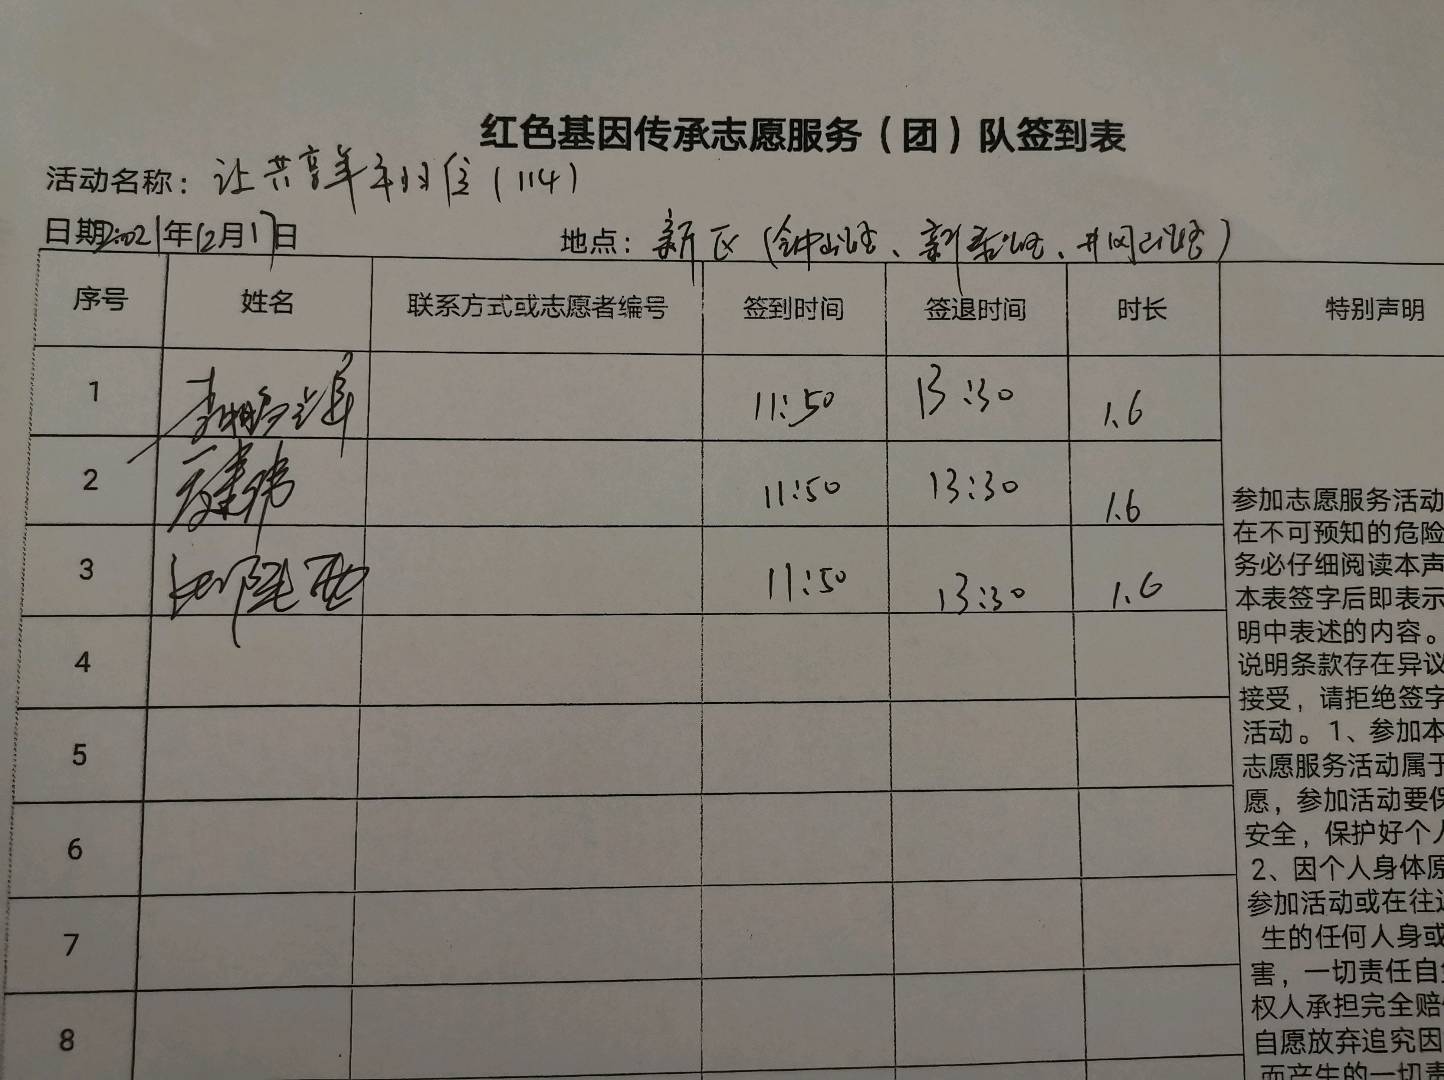 红色基因传承志愿服务（团）队签到表
活动名称：让共享单车归位（114）
日期2021年12月17日 地点：新区（钟山路、新泰路、井冈山路）
序号 姓名 联系方式或志愿者编号 签到时间 签退时间 时长 特别声明
1 11:50 13:30 1.6
2 11:50 13:30 1.6
3 11:50 13:30 1.6
4
5
6
7
8
参加志愿服务活动
在不可预知的危险
务必仔细阅读本声
本表签字后即表示
明中表述的内容。
说明条款存在异议
接受，请拒绝签字
活动。1、参加本
志愿服务活动属于
愿，参加活动要保
安全，保护好个人
2、因个人身体原
参加活动或在往返
生的任何人身或
害，一切责任自负
权人承担完全赔偿
自愿放弃追究因
而产生的一切责